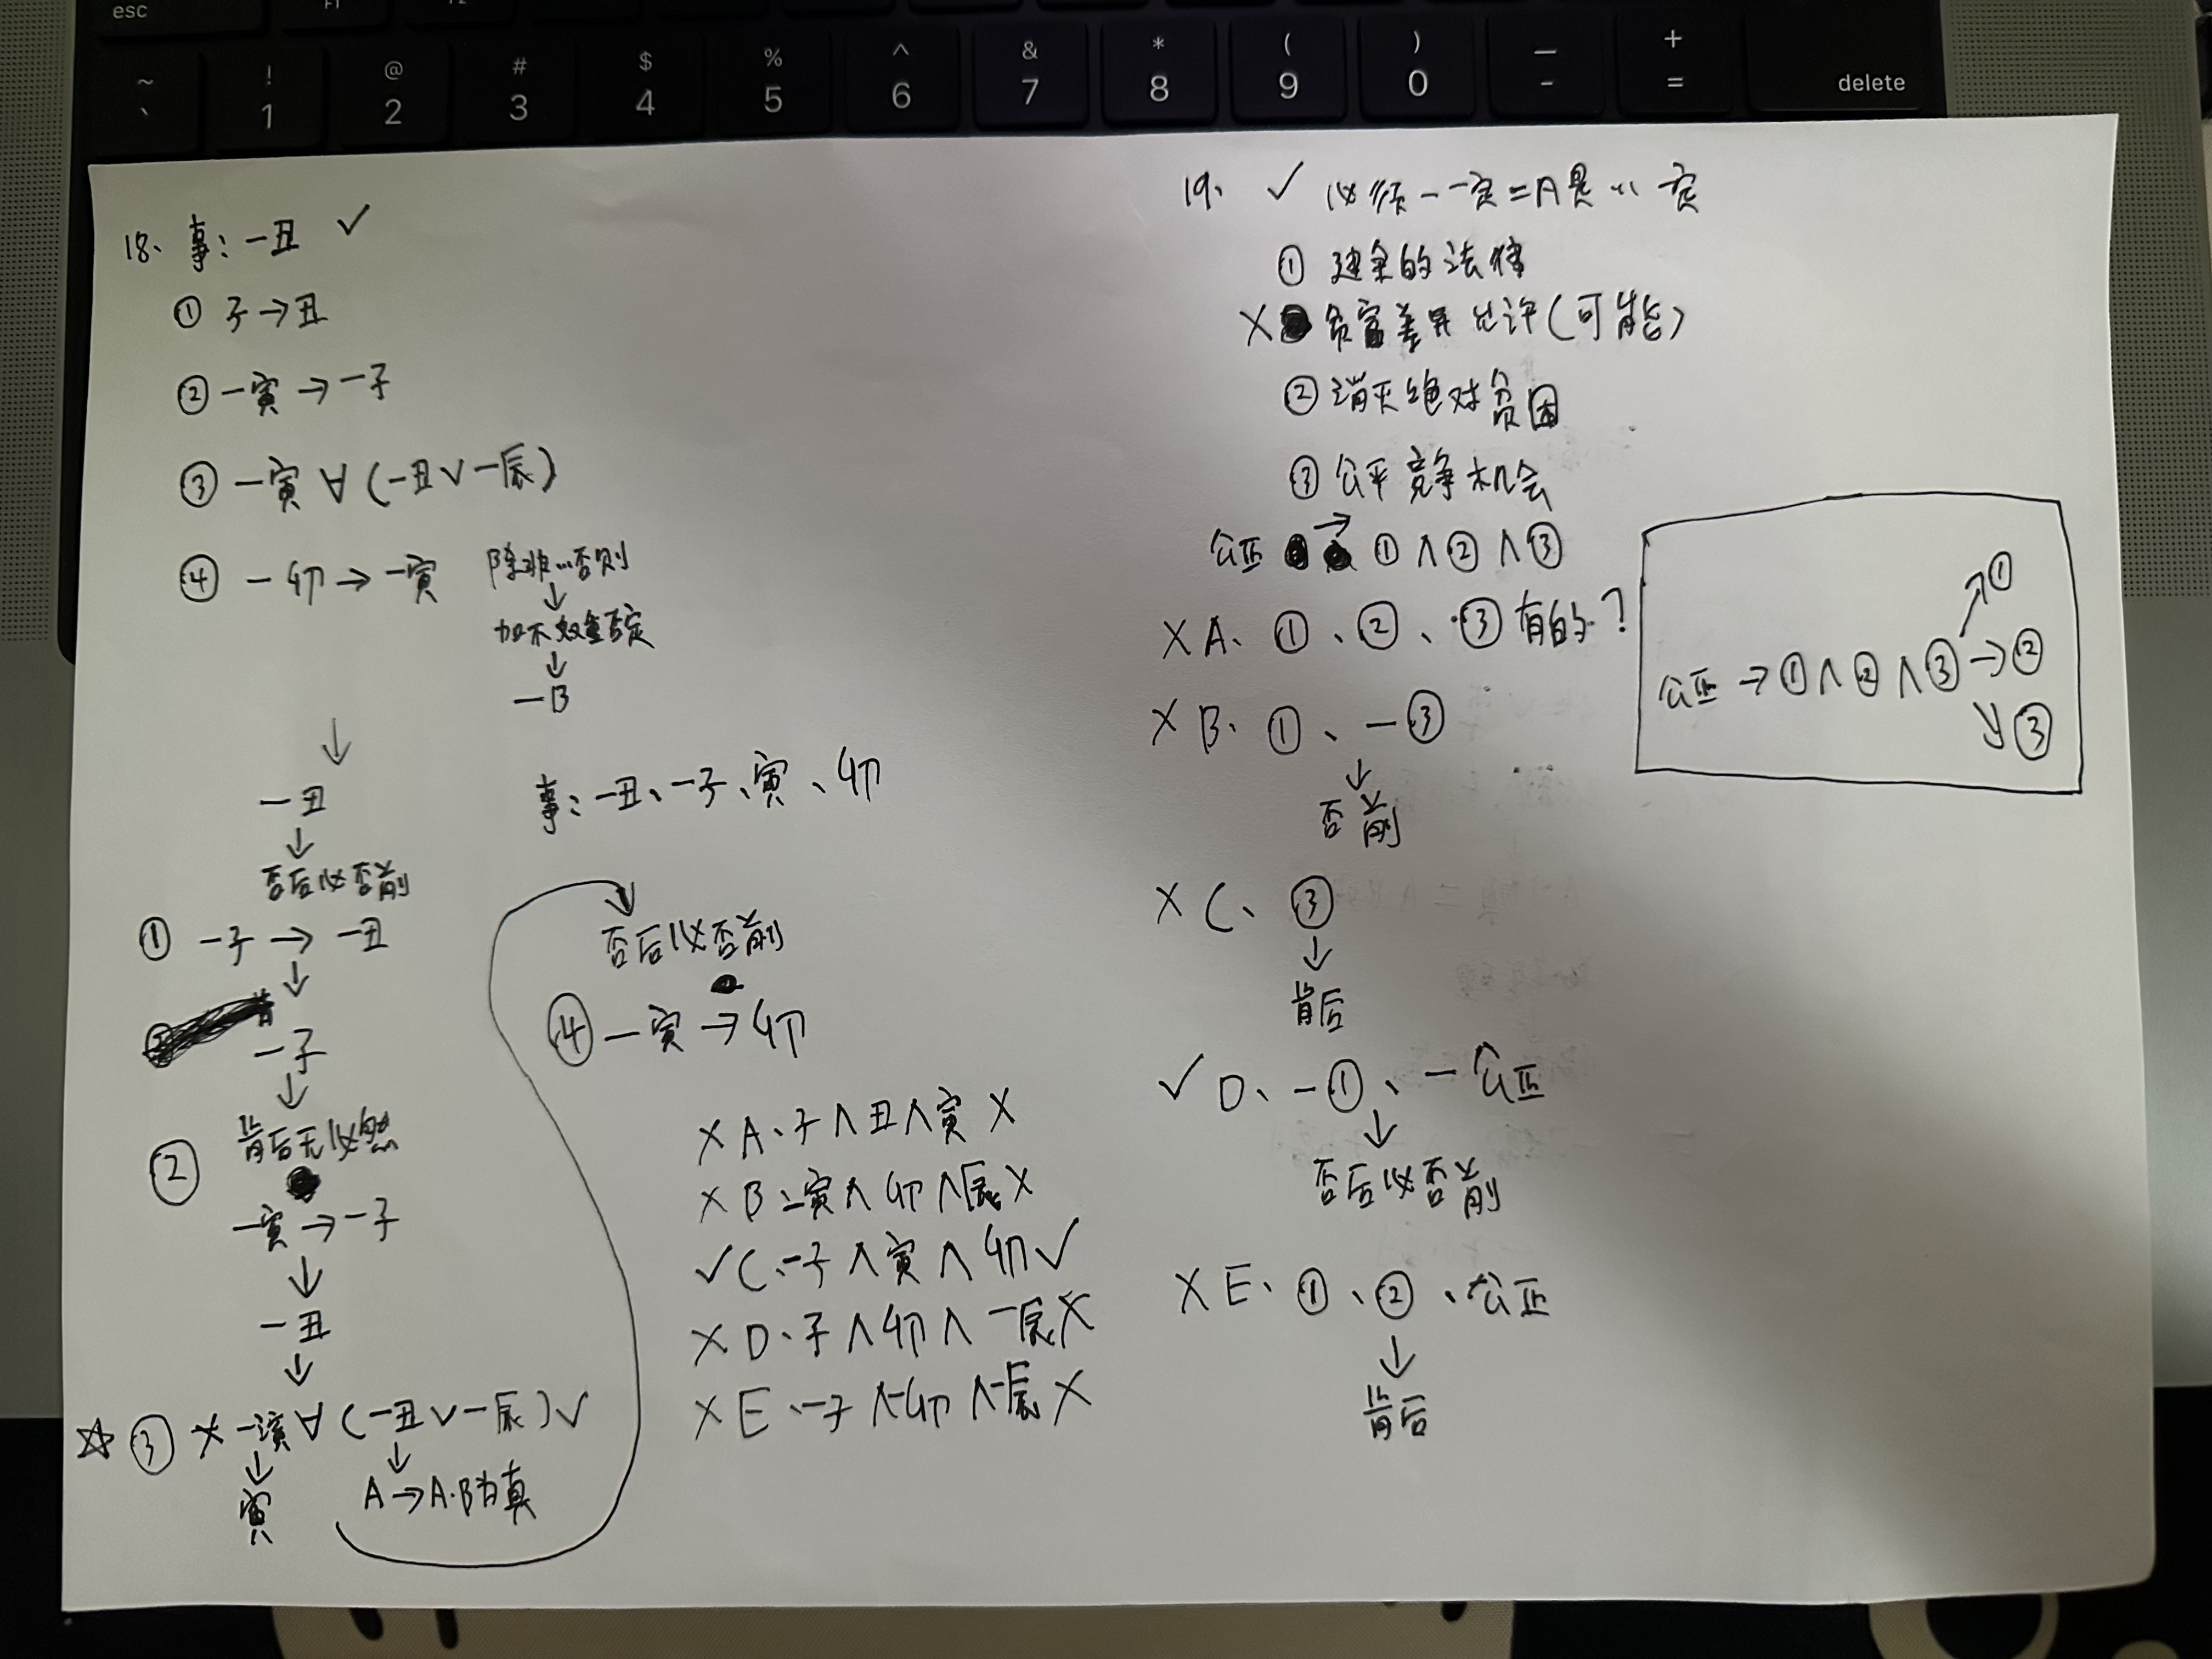 esc
F1
F2
~ ! @ # $ % ^ & * ( ) — +
` 1 2 3 4 5 6 7 8 9 0 - = delete
18、事：一丑 ✓
① 子→丑
② 一寅→一子
③ 一寅 ∀ (一丑∨一辰)
④ 一卯→一寅
除非…否则
↓
加不数量否定
↓
一B
↓
一丑
↓
否后必否前
① 一子→一丑
↓
一子
↓
② 肯后无必然
一寅→一子
↓
一丑
↓
☆ ③ ✗ 一寅∀(一丑∨一辰)✓
↓ ↓
寅 A→A·B为真
事：一丑、一子、寅、卯
否后必否前
④ 一寅→卯
✗ A、子∧丑∧寅 ✗
✗ B、寅∧卯∧辰 ✗
✓ C、一子∧寅∧卯 ✓
✗ D、子∧卯∧一辰 ✗
✗ E、一子∧一卯∧一辰 ✗
19、 ✓ 必须一一定=A是…定
① 健全的法律
✗ 贫富差异允许(可能)
② 消灭绝对贫困
③ 公平竞争机会
公正 → ①∧②∧③
✗ A、①、②、③有的？
✗ B、①、一③
↓
否前
✗ C、③
↓
肯后
✓ D、一①、一公正
↓
否后必否前
✗ E、①、②、公正
↓
肯后
公正→①∧②∧③→②
↗①
↘③